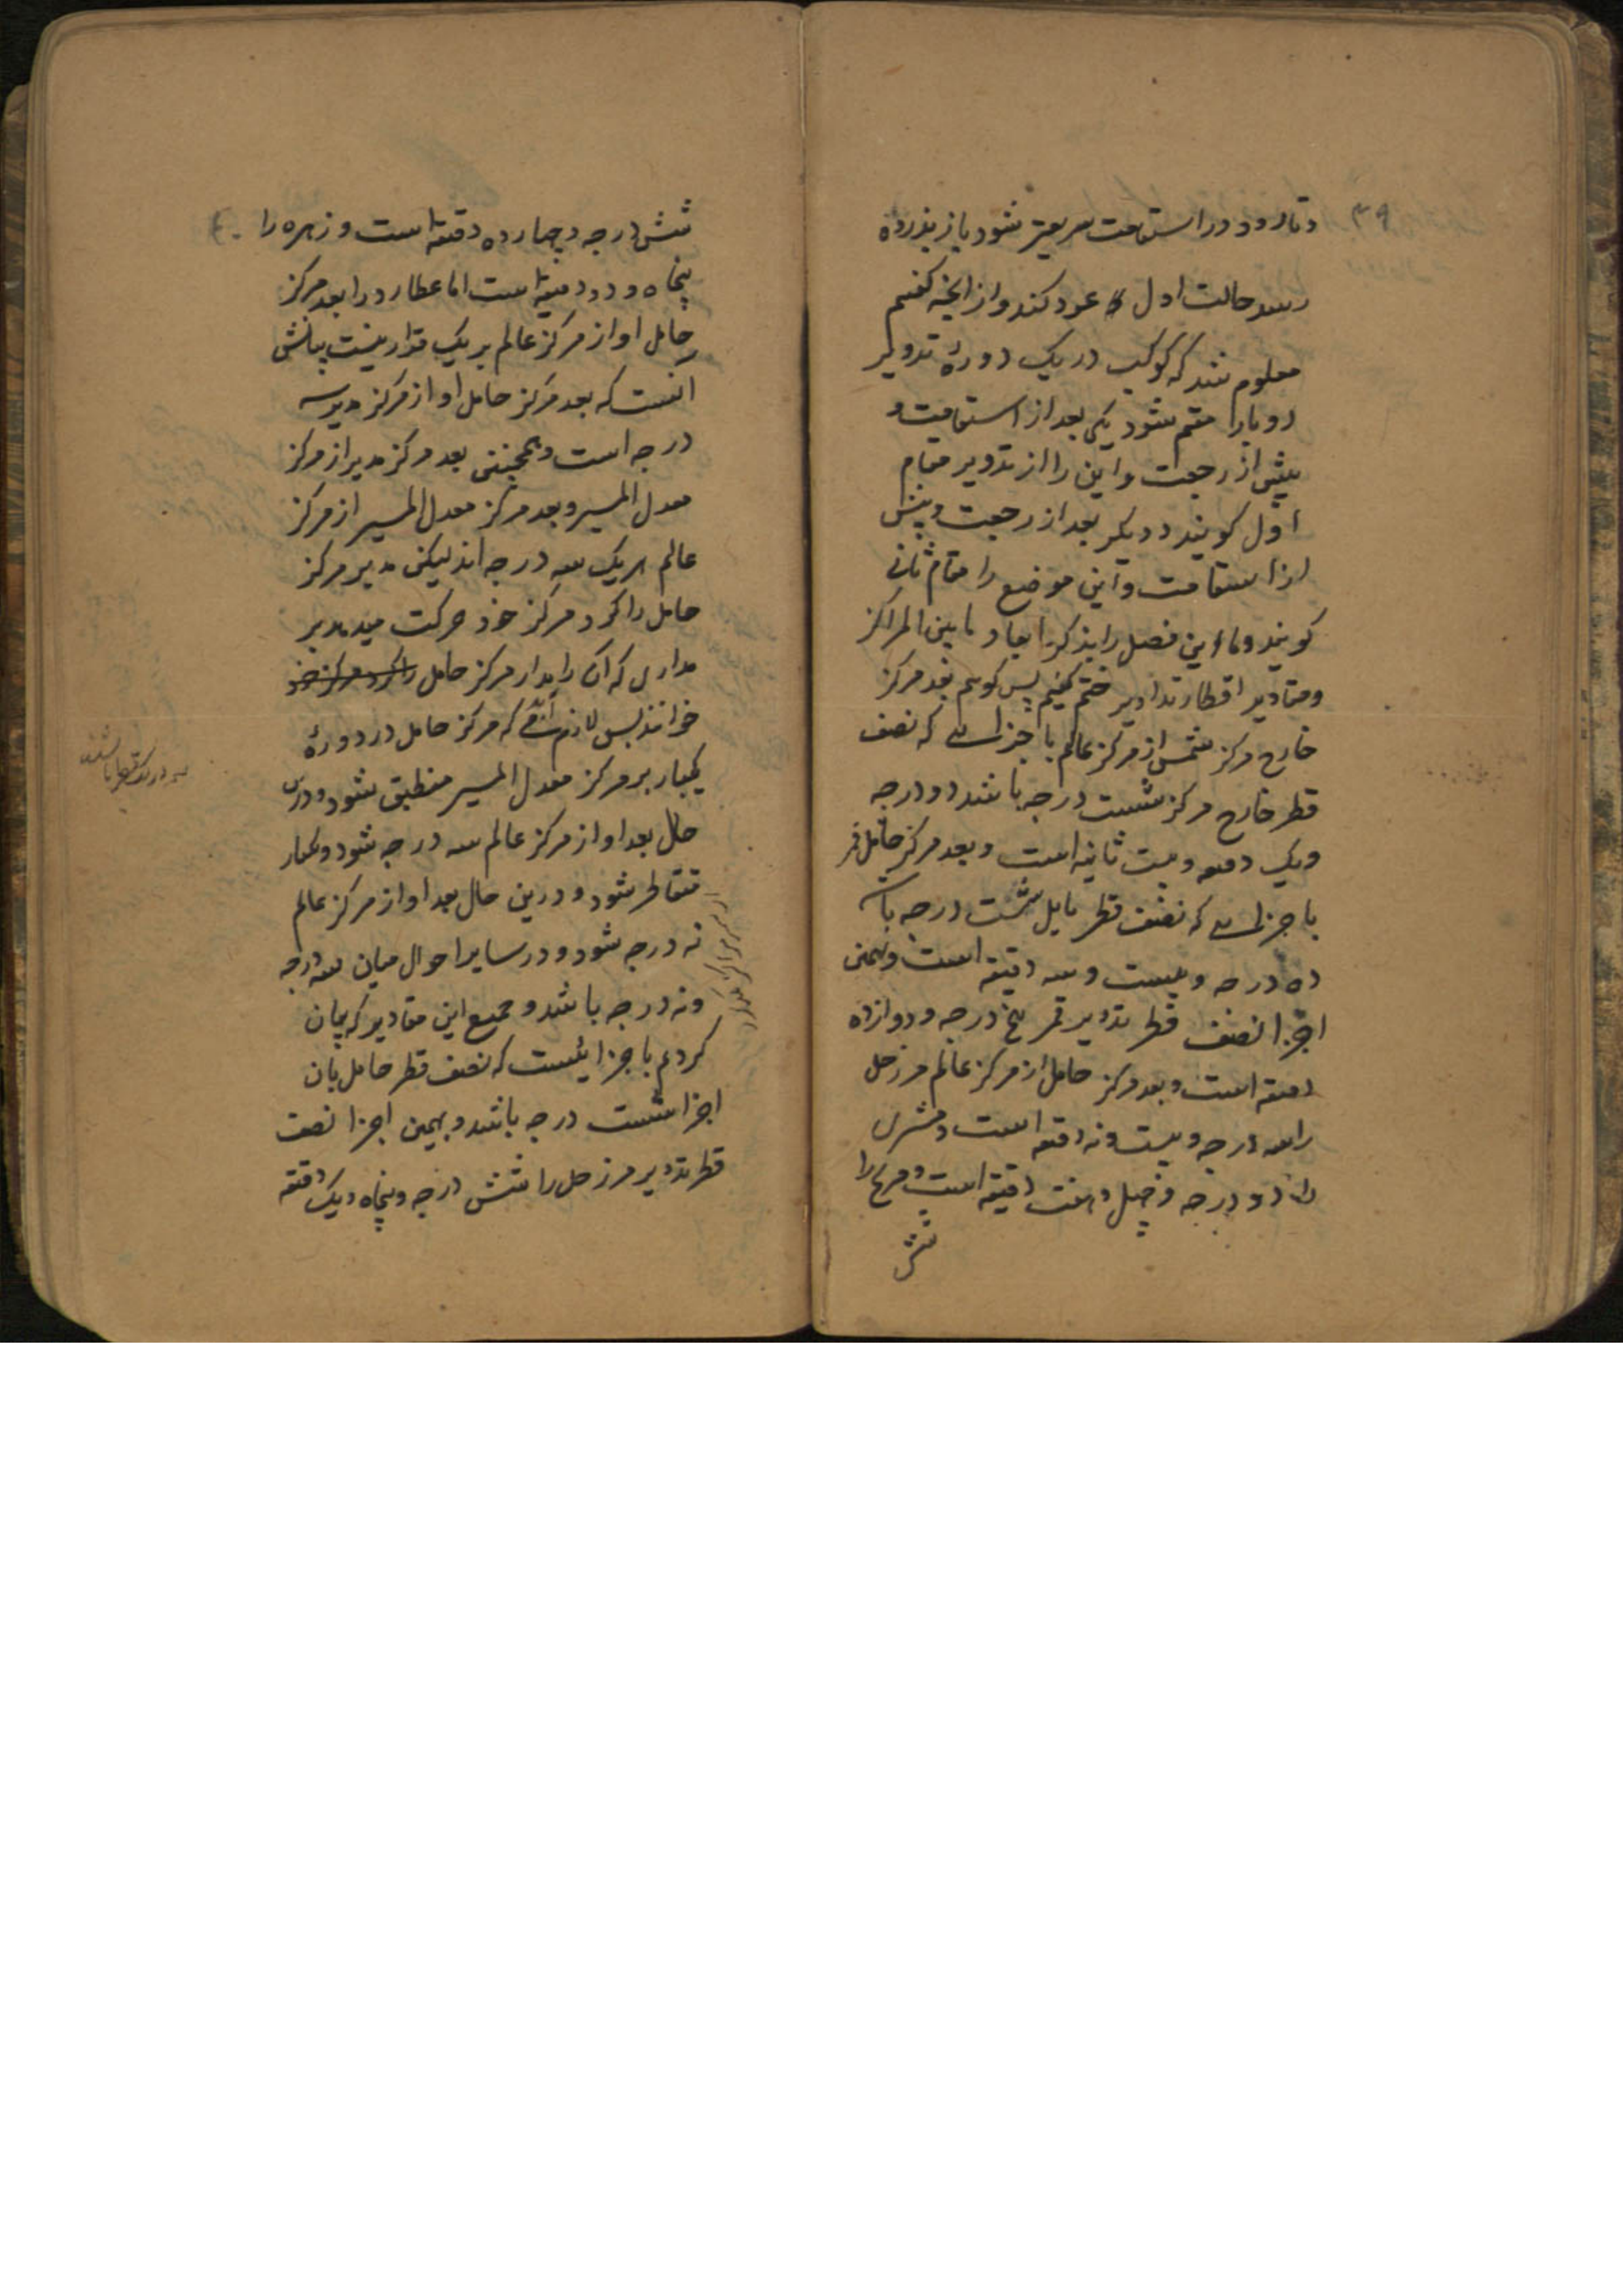 ۳۹
و تا رود در استقامت سریعتر شود باز بذروه
رسد حالت اول عود کند و از اینجه گفتیم
معلوم شد که کوکب در یک دورهٔ تدویر
دو بار مقیم شود یکی بعد از استقامت و
پیش از رجعت و این را از تدویر مقام
اول کویند و دیکر بعد از رجعت و پیش
از استقامت و این موضع را مقام ثانی
کویند و ما این فصل را بذکر ابعاد ما بین المراکز
و مقادیر اقطار تداویر ختم کنیم پس کوییم بعد مرکز
خارج مرکز شمس از مرکز عالم باجزایی که نصف
قطر خارج مرکز شست درجه باشد دو درجه
و یک دقیقه و بیست ثانیه است و بعد مرکز حامل قمر
باجزایی که نصف قطر مایل شست درجه باشد
ده درجه و بیست و سه دقیقه است و بهمین
اجزا نصف قطر تدویر قمر پنج درجه و دوازده
دقیقه است و بعد مرکز حامل از مرکز عالم مر زحل
را سه درجه و بیست و نه دقیقه است و مشتری
را دو درجه و چهل و هفت دقیقه است و مریخ را
شش
۴۰
شش درجه و چهارده دقیقه است و زهره را
پنجاه و دو دقیقه است اما عطارد را بعد مرکز
حامل او از مرکز عالم بر یک قرار نیست بیانش
آنست که بعد مرکز حامل او از مرکز مدیر سه
درجه است و همچنین بعد مرکز مدیر از مرکز
معدل المسیر و بعد مرکز معدل المسیر از مرکز
عالم هر یک سه درجه اند لیکن مدیر مرکز
حامل را کرد مرکز خود حرکت میدهد بر
مداری که آن را مدار مرکز حامل را کرد مرکز خود
خوانند پس لازم آید که مرکز حامل در دورهٔ
یکبار بر مرکز معدل المسیر منطبق شود و درین
حال بعد او از مرکز عالم سه درجه شود و یکبار
متقاطر شود و درین حال بعد او از مرکز عالم
نه درجه شود و در سایر احوال میان سه درجه
و نه درجه باشد و جمیع این مقادیر که بیان
کردم باجزائیست که نصف قطر حامل بان
اجزا شست درجه باشد و بهمین اجزا نصف
قطر تدویر مر زحل را شش درجه و پنجاه و یک دقیقه